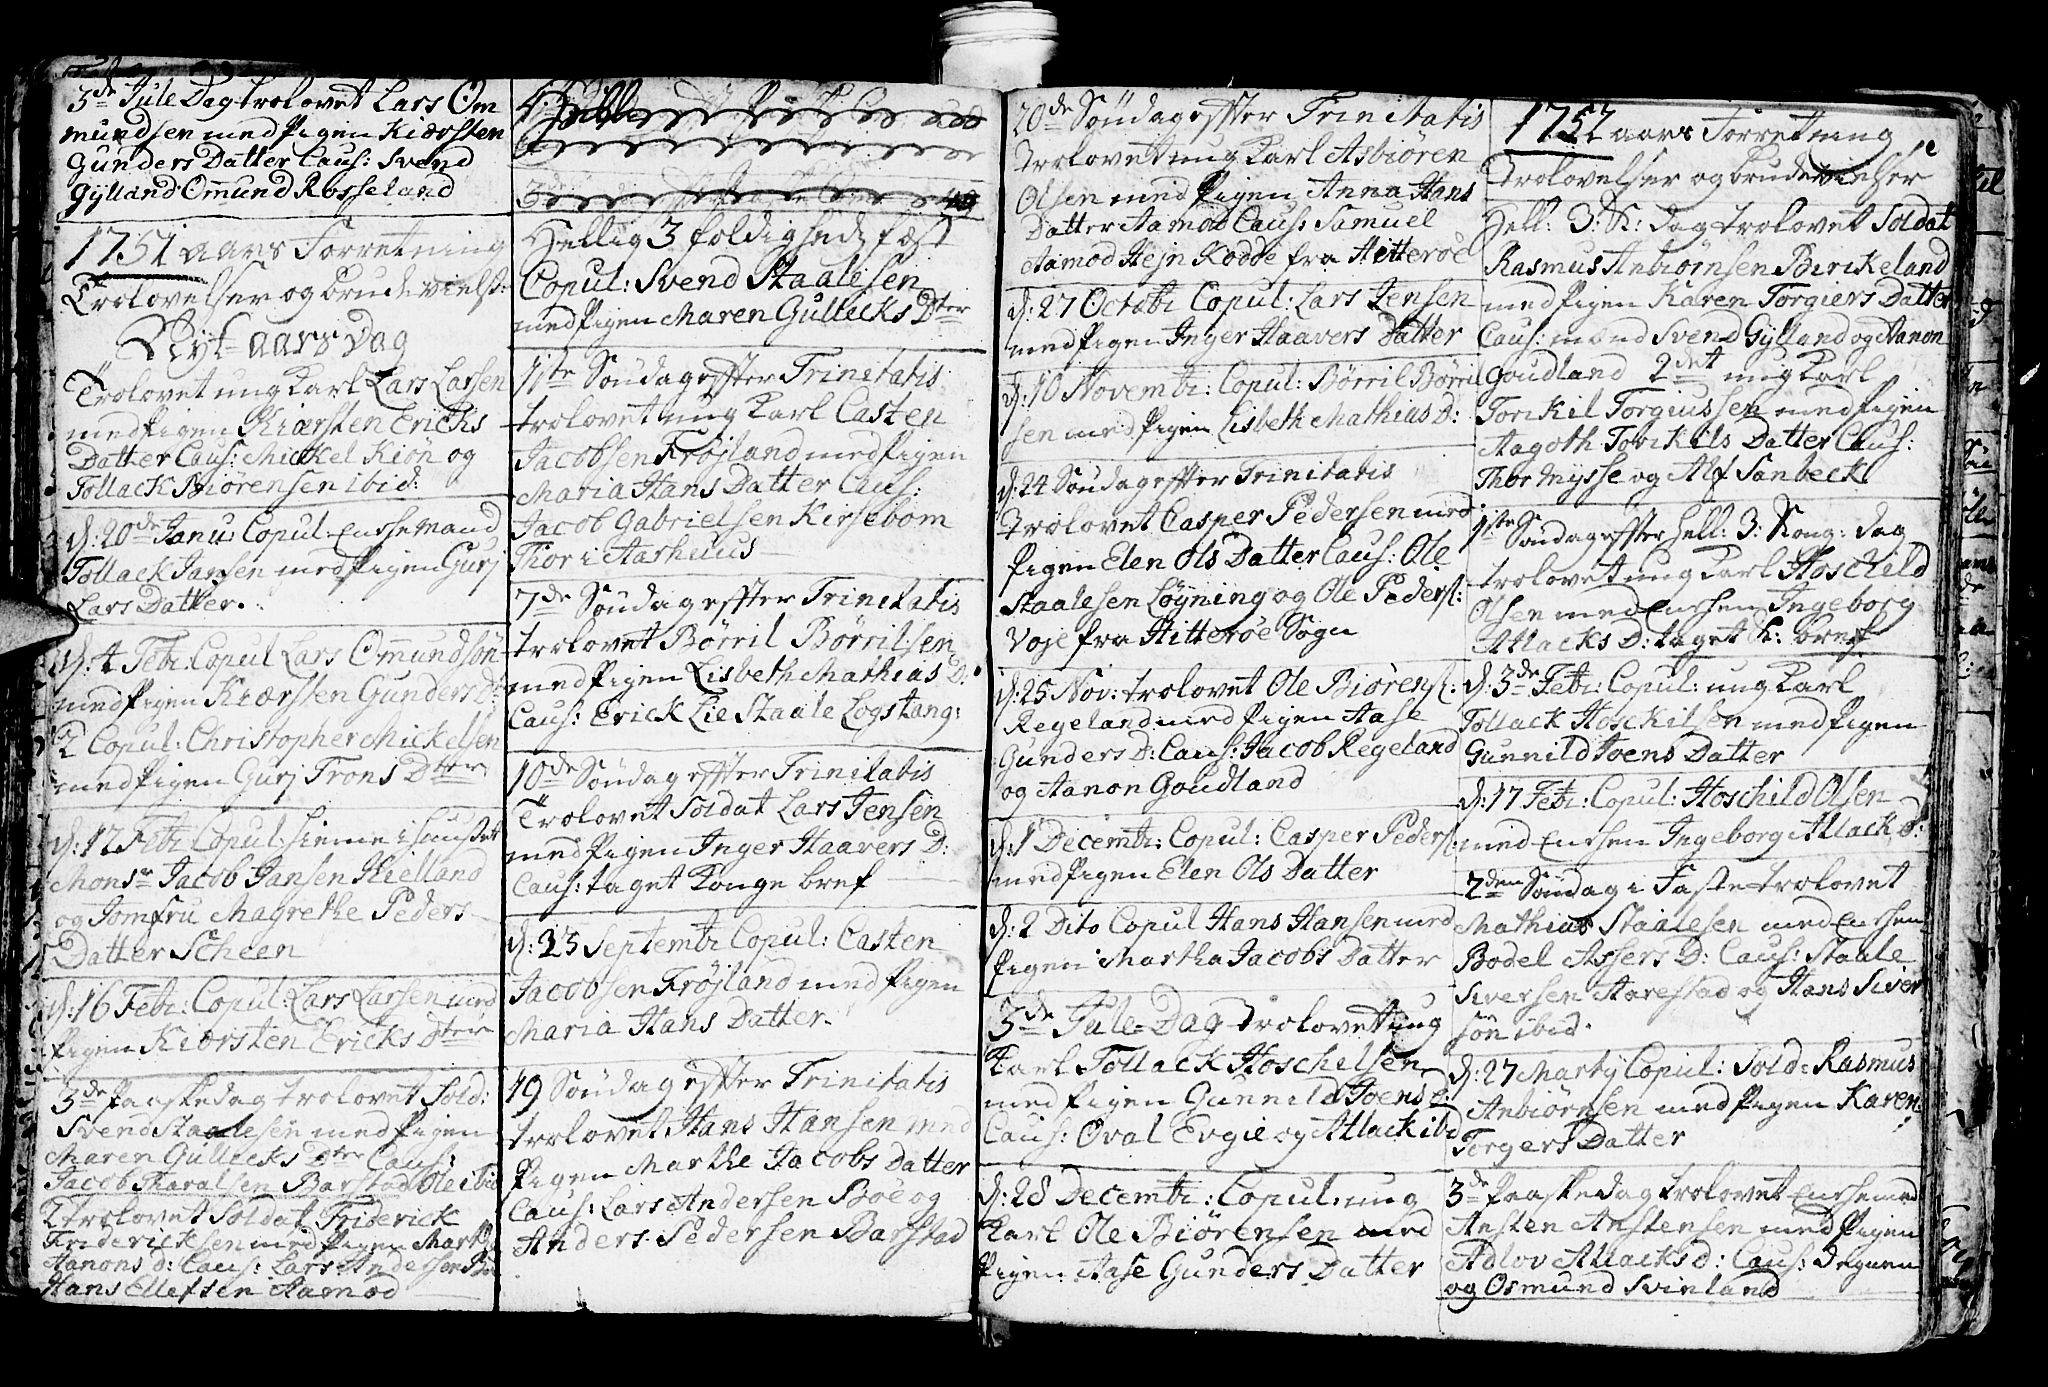 3de Jule Dag trolovet Lars Om
mundsen med Pigen Kiørsten
Gunders Datter Caus: Svend
Gylland Omund Rosseland
1751 aars Forretning
Trolovelser og brude vielse:
Nyt-aars Dag
Trolovet ung Karl Lars Larsen
med Pigen Kiørsten Ericks
Datter Caus: Mickel Kiön og
Tollack Biörensen ibid:
d: 20de Janu: Copul Enkemand
Tollack Jansen med Pigen Gurj
Lars Datter.
d: 4 Febr: Copul Lars Omundsön
med Pigen Kiørsten Gunders D:
2 Copul: Christopher Mickelsen
med Pigen Gurj Trons Dtter
d: 12 Febr: Copul: hieme i Huuset
Monsr Jacob Jansen Kielland
og Jomfru Magrethe Peders
Datter Scheen
d: 16 Febr: Copul: Lars Larsen med
Pigen Kiørsten Ericks Dtter
3de Paaskedag trolovet Sold:
Svend Staalesen med Pigen
Maren Gullecks Dtter Caus:
Jacob Tharalsen Barstad Ole ibid
2 trolovet Soldat Friderick
Fridericksen med Pigen Marth
Aanons d: Caus: Lars Andersen Bö
Hans Ellefsen Aamod
Hellig 3 foldigheds fest
Copul: Svend Staalesen
med Pigen Maren Gullecks Dtter
1ste Söndag effter Trinitatis
trolovet ung Karl Casten
Jacobsen Fröjland med Pigen
Maria Hans Datter Caus:
Jacob Gabrielsen Kirsebom
Thor i Aarhuus
7de Söndag effter Trinitatis
trolovet Börril Börrilsen
med Pigen Lisbeth Mathias D:
Caus: Erick Lie Staale Logstang:
10de Söndag effter Trinitatis
Trolovet Soldat Lars Jensen
med Pigen Inger Haavers D:
Caus: taget Konge bref
d: 23 Septembr Copul: Casten
Jacobsen Fröjland med Pigen
Maria Hans Datter.
19 Söndag effter Trinitatis
trolovet Hans Hansen med
Pigen Marthe Jacobs Datter
Caus: Lars Andersen Böe og
Anders Pedersen Barstad
20de Söndag effter Trinitatis
trolovet ung Karl Asbiören
Olsen med Pigen Anna Hans
Datter Aamod Caus: Samuel
Aamod Hejn Rodde fra Hitteröe
d: 27 Octobr Copul: Lars Jensen
med Pigen Inger Haavers Datter
d: 10 Novembr: Copul: Börril Börril
sen med Pigen Lisbeth Mathias D:
d: 24 Söndag effter Trinitatis
trolovet Casper Pedersen med
Pigen Elen Ols Datter Caus: Ole
Staalesen Löyning og Ole Peders:
Voje fra Hitteröe Sogn
d: 25 Nov: trolovet Ole Biörens:
Regeland med Pigen Aase
Gunders D: Caus: Jacob Regeland
og Aanon Goudland
d: 1 Decembr: Copul: Casper Peders:
med Pigen Elen Ols Datter
d: 2 Dito Copul Hans Hansen med
Pigen Martha Jacobs Datter
3de Jule-Dag trolovet ung
Karl Tollack Hoschelsen
med Pigen Gunnild Joens d:
Caus: Oval Evgie og Atlack ibid
d: 28 Decembr: Copul: ung
Karl Ole Biörensen med
Pigen Aase Gunders Datter
1752 aars Forretning
Trolovelser og brude vielser
Hell: 3: K: dag trolovet Soldat
Rasmus Anbiörnsen Birkeland
med Pigen Karen Torgiers Datter
Caus: mænd Svend Gylland og Aanon
Goudland 2det ung Karl
Torikil Torgiussen med Pigen
Aagoth Torikils Datter Caus:
Thor Mysse og Alf Sanbeck
1ste Söndag effter Hell: 3: Kong: dag
trolovet ung Karl Hoschild
Olsen med Enken Ingeborg
Atlacks D: taget K: bref
d: 3de Febr: Copul: ung Karl
Tollack Hosckilsen med Pigen
Gunnild Joens Datter
d: 17 Febr: Copul: Hoschild Olsen
med Enken Ingeborg Atlack d:
2den Söndag i Faste trolovet
Mathias Staalesen med Enken
Bodel Assers D: Caus: Staale
Siversen Aarestad og Hans Siver
sön ibid.
d: 27 Martj Copul: Sold: Rasmus
Anbiörnsen med Pigen Karen
Torgers Datter
3de Paaskedag trolovet Enkemand
Ansten Anstensen med Pigen
Adlov Atlacks d: Caus: Degnen
og Osmund Svinland